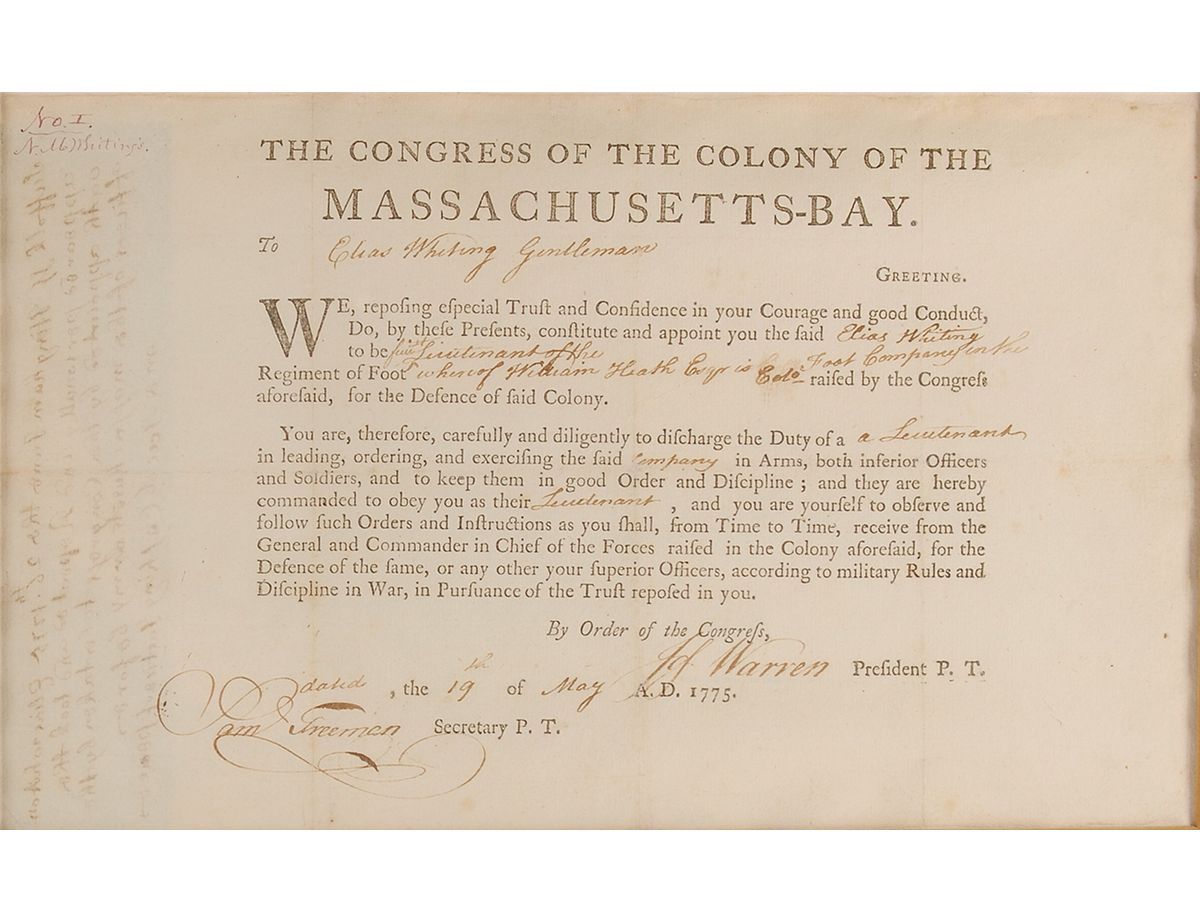 No. I.
N. M. Whiting's.
THE CONGRESS OF THE COLONY OF THE
MASSACHUSETTS-BAY.
To Elias Whiting Gentleman
GREETING.
WE, repoſing eſpecial Truſt and Confidence in your Courage and good Conduct,
Do, by theſe Preſents, conſtitute and appoint you the ſaid Elias Whiting
to be Lieutenant of the Foot Company in the
Regiment of Foot whereof William Heath Esqr is Colo. raiſed by the Congreſs
aforeſaid, for the Defence of ſaid Colony.
You are, therefore, carefully and diligently to diſcharge the Duty of a a Lieutenant
in leading, ordering, and exerciſing the ſaid Company in Arms, both inferior Officers
and Soldiers, and to keep them in good Order and Diſcipline ; and they are hereby
commanded to obey you as their Lieutenant , and you are yourſelf to obſerve and
follow ſuch Orders and Inſtructions as you ſhall, from Time to Time, receive from the
General and Commander in Chief of the Forces raiſed in the Colony aforeſaid, for the
Defence of the ſame, or any other your ſuperior Officers, according to military Rules and
Diſcipline in War, in Purſuance of the Truſt repoſed in you.
By Order of the Congreſs,
Jos Warren Preſident P. T.
dated , the 19th of May A. D. 1775.
Saml Freeman Secretary P. T.